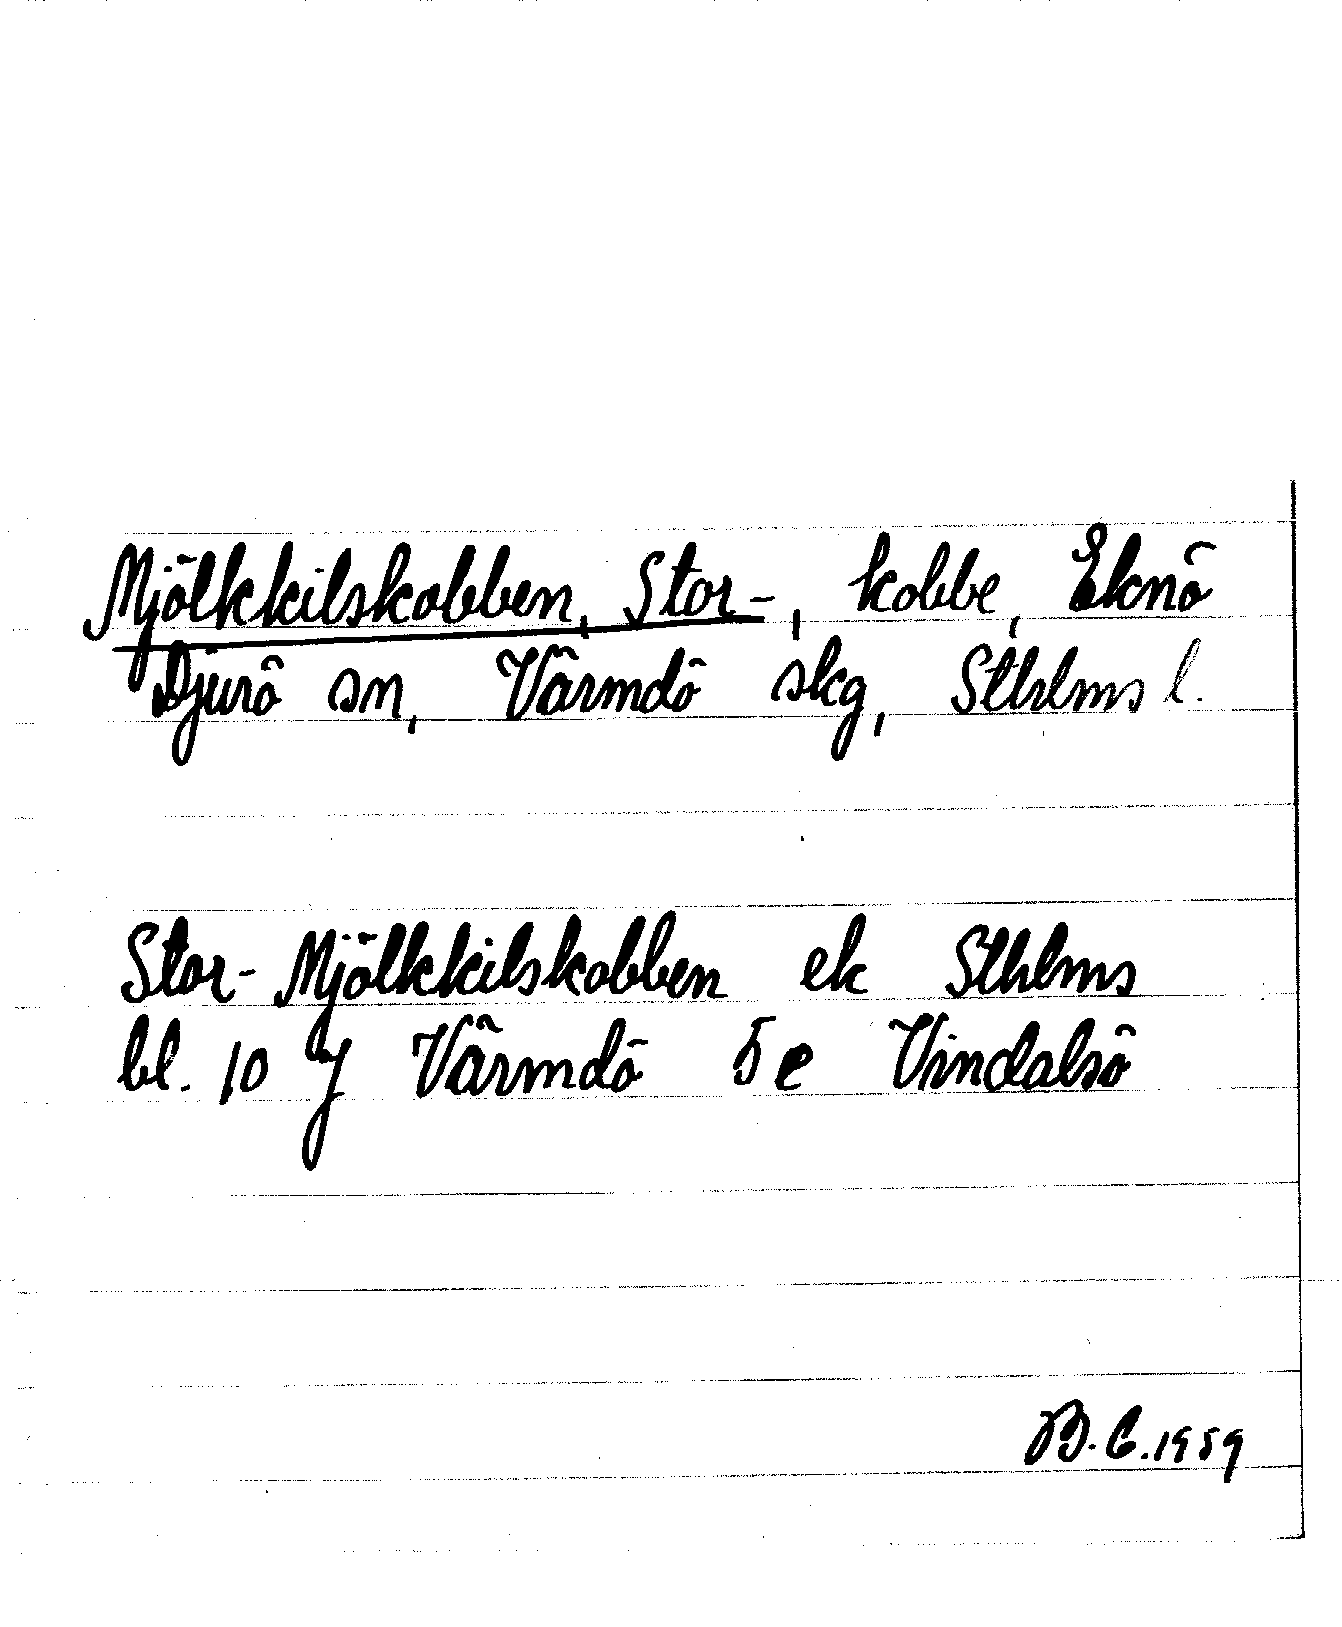 Mjölkkilskobben, Stor-, kobbe, Eknö
Djurö sn, Värmdö skg, Sthlms l.
Stor-Mjölkkilskobben ek Sthlms
bl. 10 J Värmdö 5e Vindalsö
B.C.1959